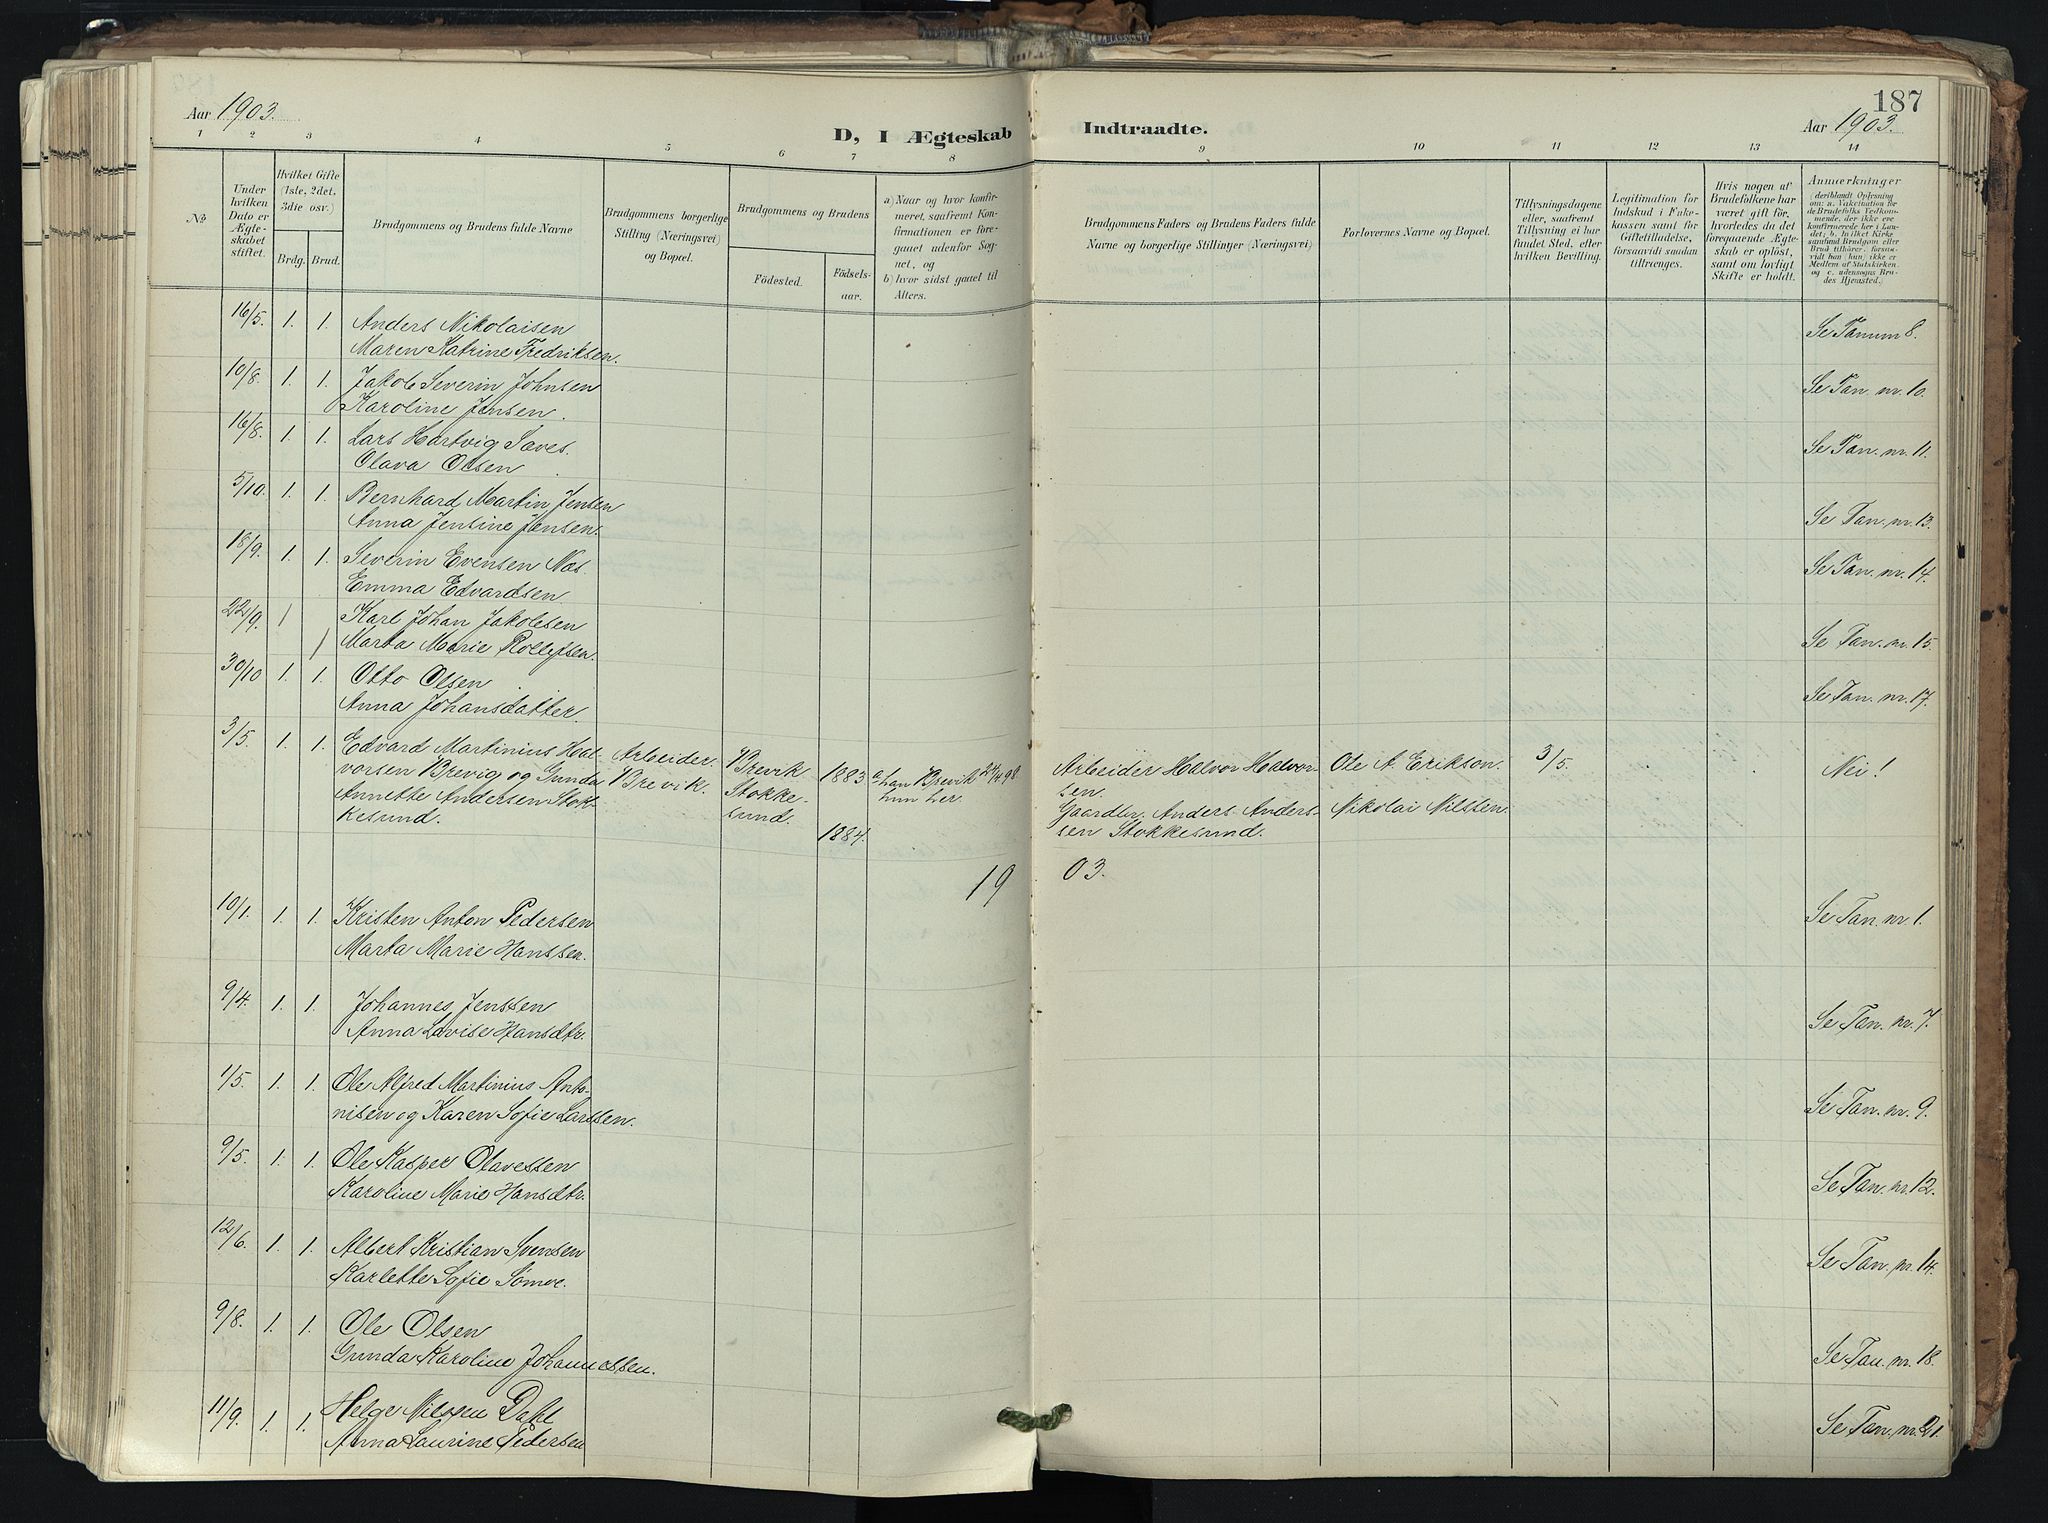 187
Aar 1903.
D, I Ægteskab Indtraadte.
Aar 1903.
1 2 3 4 5 6 7 8 9 10 11 12 13 14
No
Under hvilken Dato er Ægteskabet stiftet.
Hvilket Gifte (1ste, 2det, 3die osv.)
Brdg. Brud.
Brudgommens og Brudens fulde Navne
Brudgommens borgerlige Stilling (Næringsvei) og Bopæl.
Brudgommens og Brudens
Födested. Födselsaar.
a) Naar og hvor konfirmeret, saafremt Konfirmationen er foregaaet udenfor Sognet, og
b) hvor sidst gaaet til Alters.
Brudgommens Faders og Brudens Faders fulde Navne og borgerlige Stillinger (Næringsvei)
Forlovernes Navne og Bopæl.
Tillysningsdagene eller, saafremt Tillysning ei har fundet Sted, efter hvilken Bevilling.
Legitimation for Indskud i Enkekassen samt for Giftetilladelse, forsaavidt saadan tiltrænges.
Hvis nogen af Brudefolkene har været gift för, hvorledes da det foregaaende Ægteskab er oplöst, samt om lovligt Skifte er holdt.
Anmærkninger
16/5. 1. 1. Anders Nikolaisen
Maren Katrine Fredriksen. Se Tanum 8.
10/8. 1. 1. Jakob Severin Johnsen
Karoline Jensen. Se Tan. nr. 10.
16/8. 1. 1. Lars Hartvig Saves.
Olava Olsen Se Tan. nr. 11.
5/10. 1. 1. Bernhard Martin Jensen
Anna Jensine Jensen. Se Tan. nr. 13.
18/9. 1. 1. Severin Evensen Næs.
Emma Edvardsen Se Tan. nr. 14.
22/9. 1 Karl Johan Jakobsen
1 Marta Marie Rollefsen. Se Tan. nr. 15.
30/10 1. 1. Otto Olsen
Anna Johansdatter. Se Tan. nr. 17.
3/5. 1. 1. Edvard Martinius Hal- Arbeider. Brevik 1883 a. han Brevik 24/4 98. Arbeider Halvor Halvor- Ole A. Erikson. 3/5. Nei!
vorsen Brevig og Gunda Brevik. Stokke- hun her. sen.
Annette Andersen Stok- sund. Gaardbr. Anders Anders- Nikolai Nilssen.
kesund. 1884. sen Stokkesund.
19 03.
10/1. 1. 1. Kristen Anton Pedersen Se Tan. nr. 1.
Marta Marie Hanssen.
9/4. 1. 1. Johannes Jenssen
Anna Lovise Hansdtr. Se Tan. nr. 7.
1/5. 1. 1. Ole Alfred Martinius Anto-
nisen og Karen Sofie Larssen. Se Tan. nr. 9.
9/5. 1. 1. Ole Kasper Olavessen
Karoline Marie Hansdtr. Se Tan. nr. 12.
12/6. 1. 1. Albert Kristian Svenssen
Karlette Sofie Sömoe. Se Tan. nr. 14.
9/8. 1. 1. Ole Olsen
Gunda Karoline Johannessen. Se Tan. nr. 18.
11/9. 1. 1. Helge Nilssen Dahl
Anna Laurine Pedersen Se Tan. nr. 21.